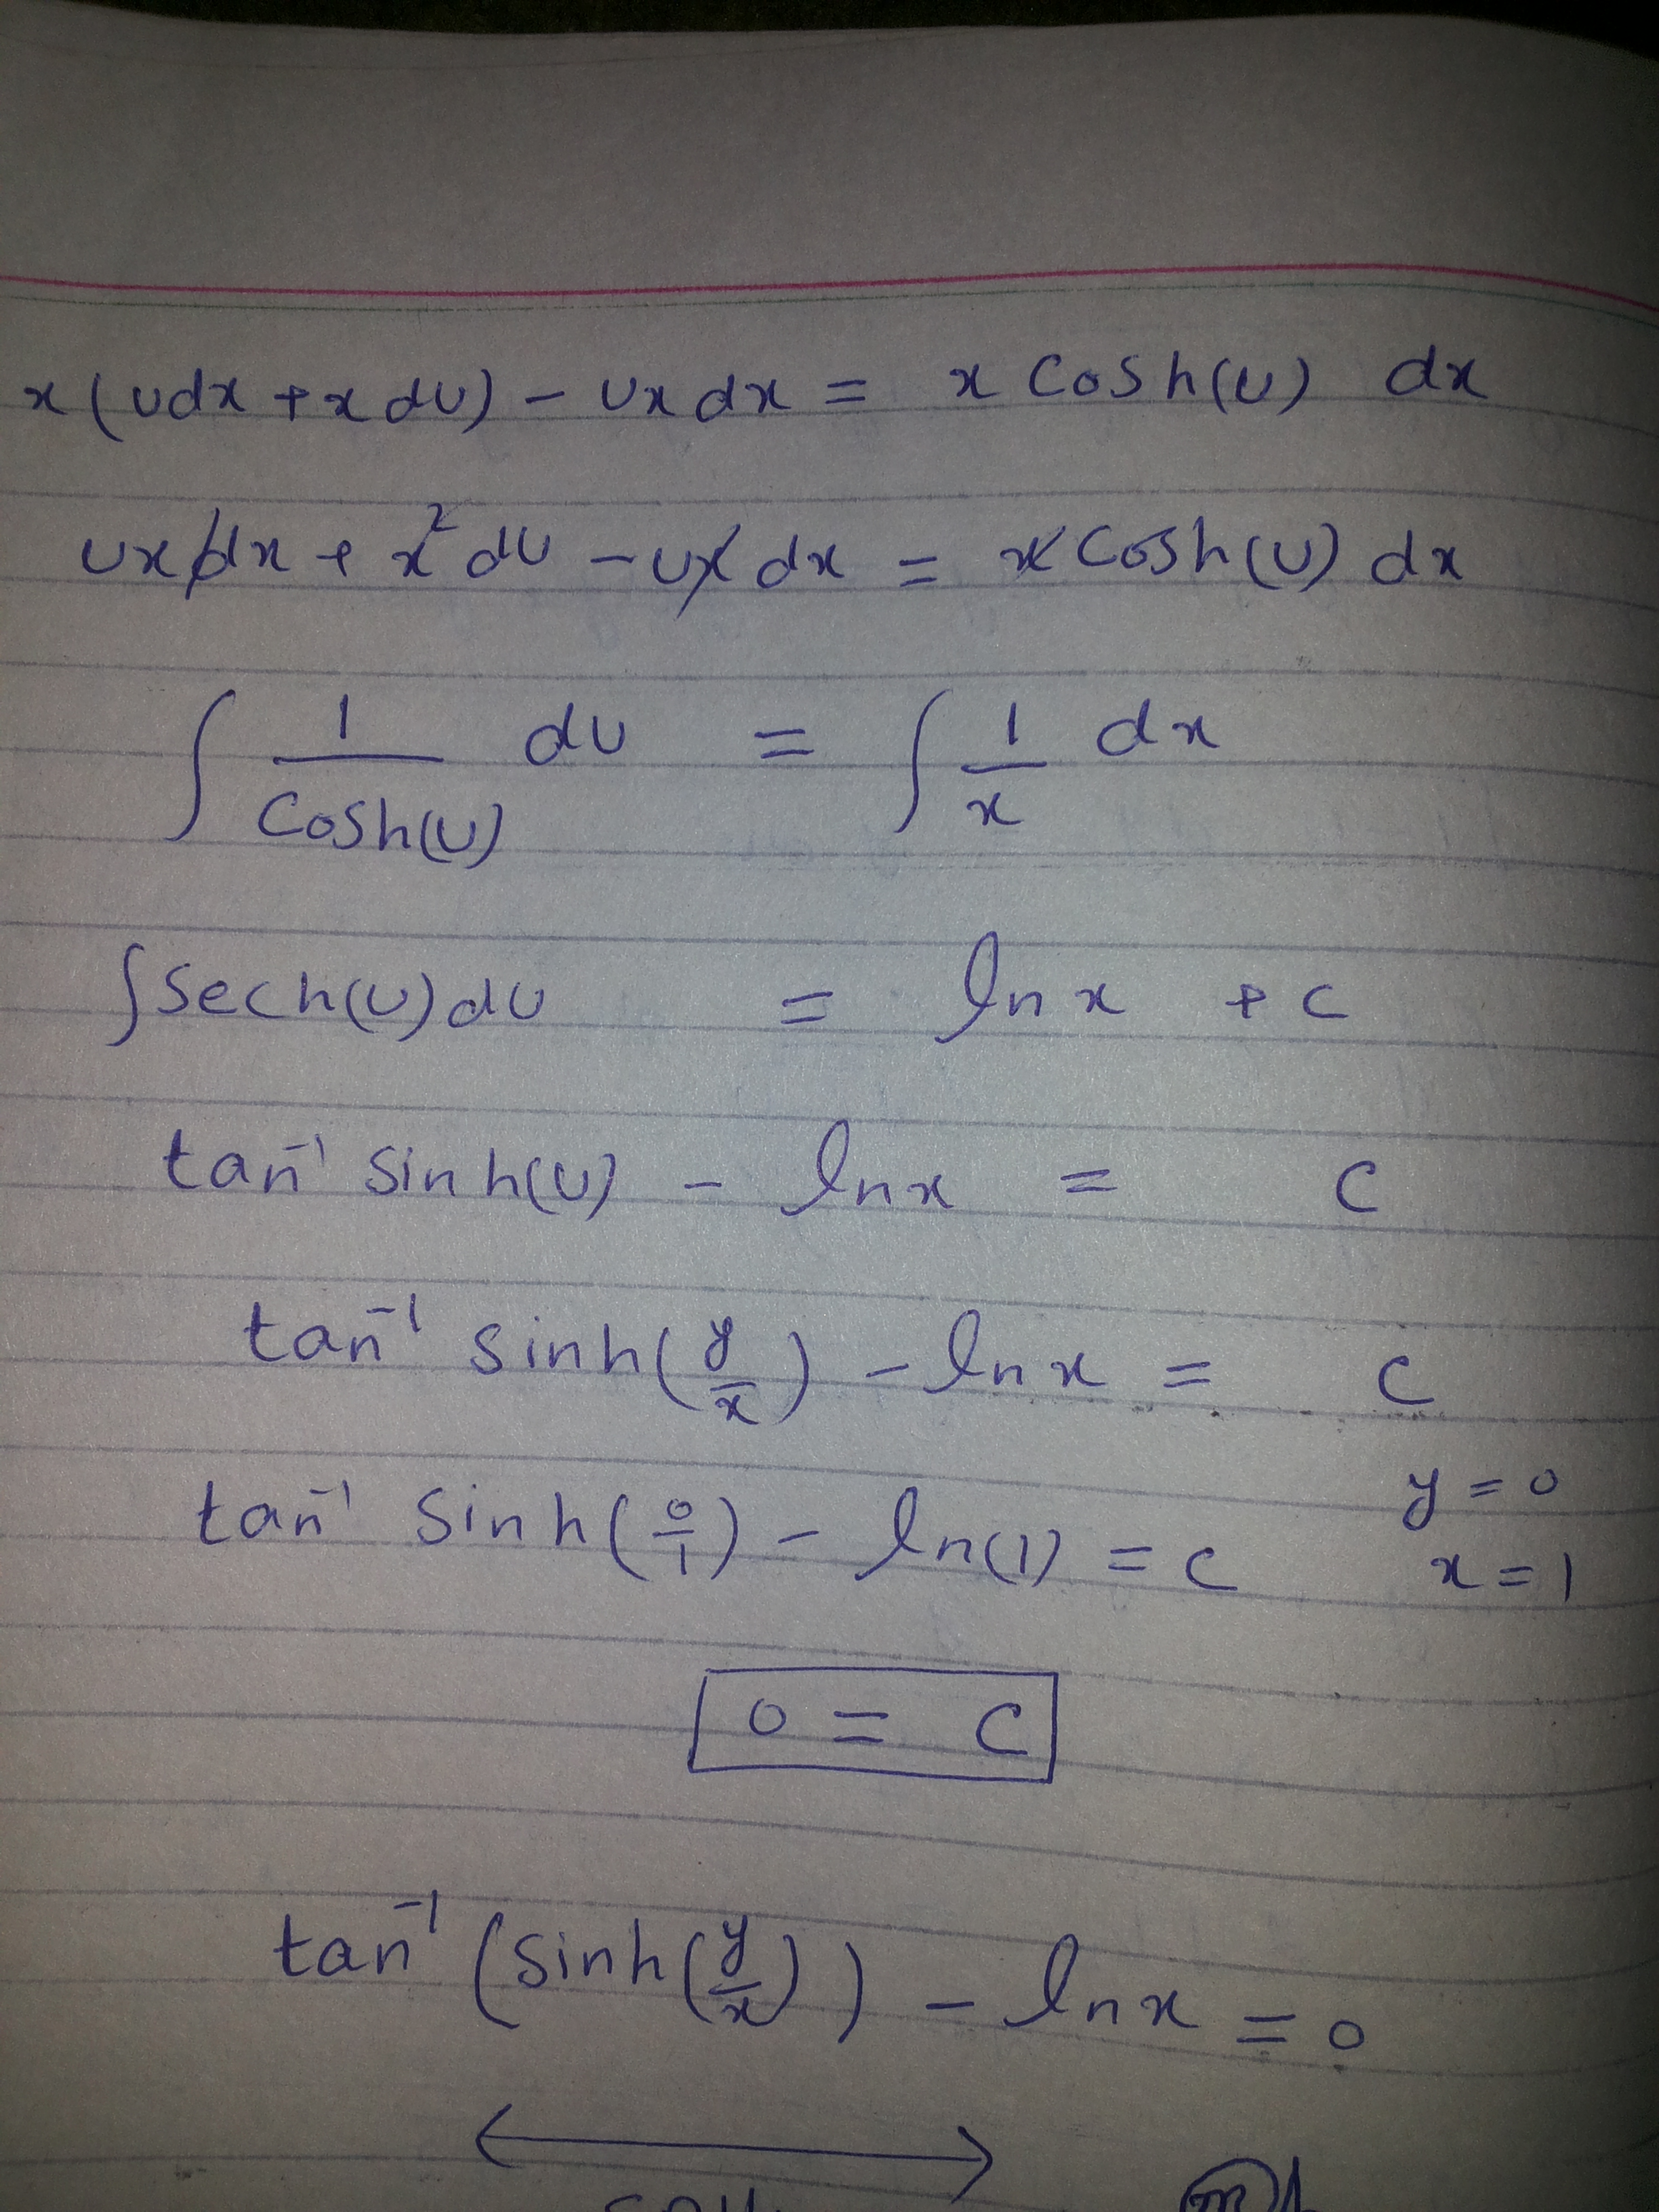 x(udx + x du) - ux dx = x Cosh(u) dx
ux dx + x² du - ux dx = x Cosh(u) dx
∫ 1/Cosh(u) du = ∫ 1/x dx
∫ Sech(u) du = ln x + c
tan⁻¹ Sinh(u) - ln x = c
tan⁻¹ Sinh(y/x) - ln x = c
tan⁻¹ Sinh(0/1) - ln(1) = c y = 0
x = 1
0 = c
tan⁻¹ (Sinh(y/x)) - ln x = 0